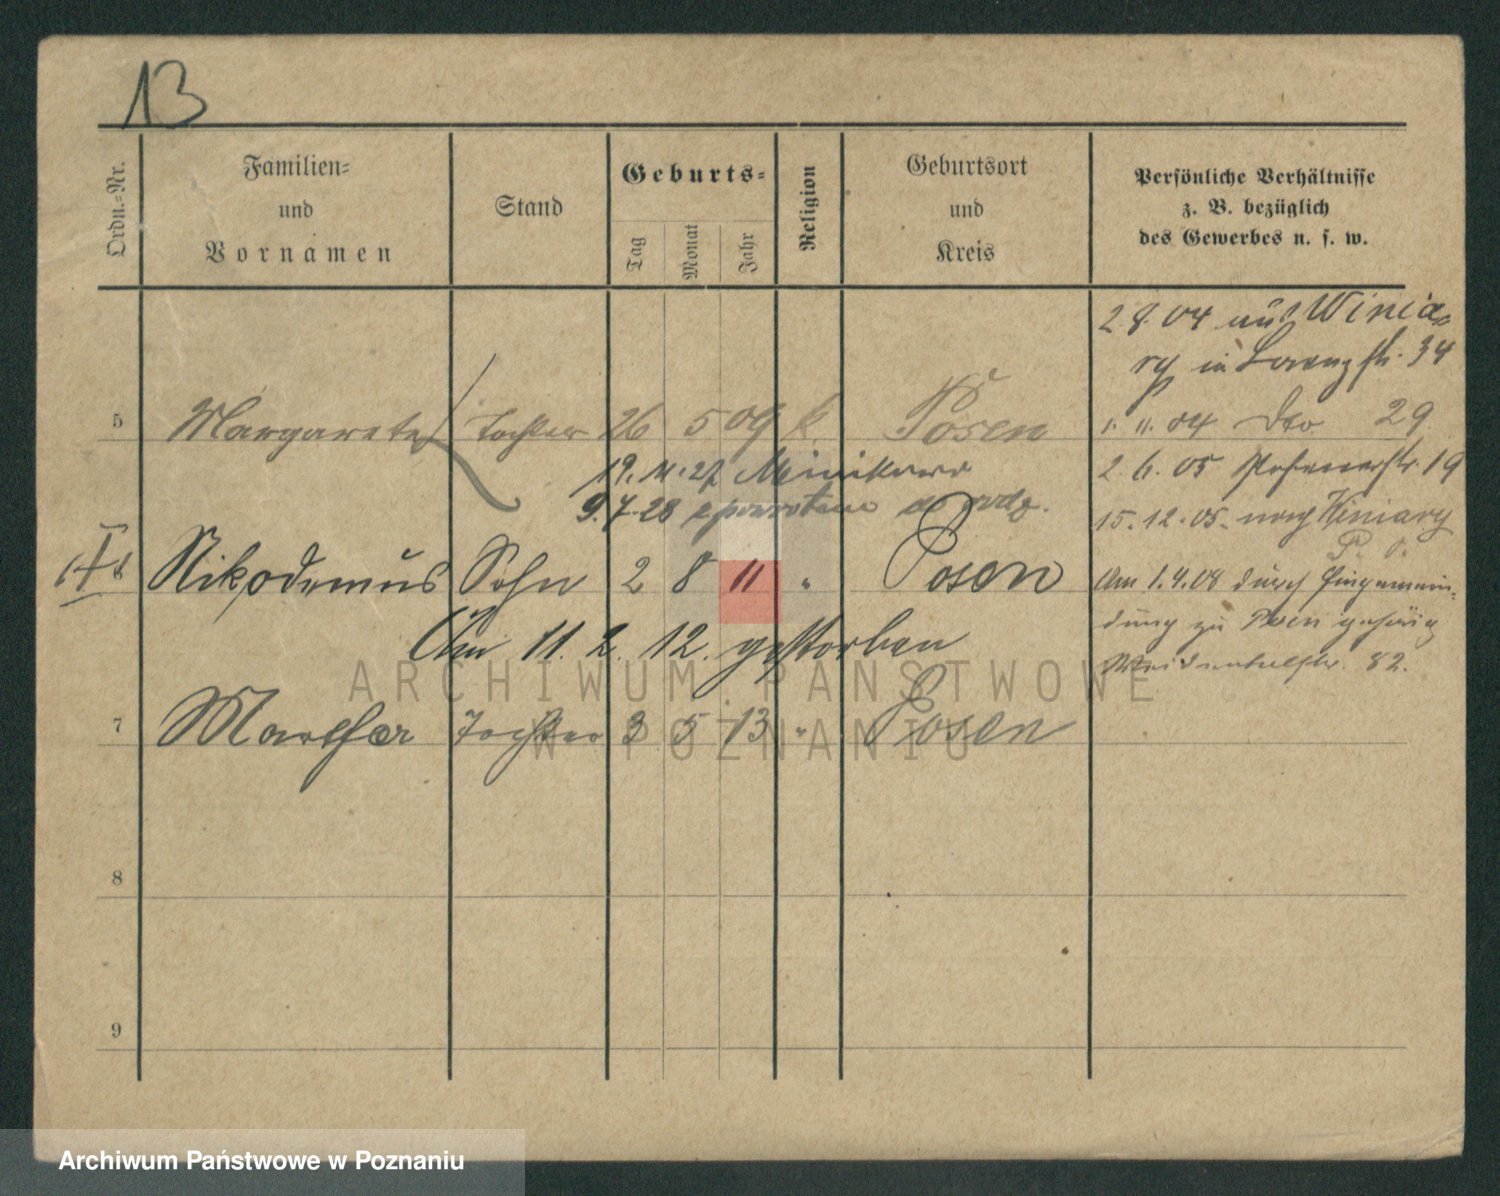 13
Ordn.-Nr.
Familien-
und
Vornamen
Stand
Geburts-
Tag
Monat
Jahr
Religion
Geburtsort
und
Kreis
Persönliche Verhältnisse
z. B. bezüglich
des Gewerbes u. s. w.
5 Margarete Tochter 26 5 09 k. Posen
19.11.27 Minikowo
9.7.28 z powrotem do rodz.
† Nikodemus Sohn 2 8 11 " Posen
Am 11. 2. 12. gestorben
7 Martha Tochter 3 5 13 " Posen
8
9
2.8.04 aus Winia-
ry in Lorenzstr. 34
1. 11. 04 dto 29
2. 6. 05 Posenerstr. 19
15.12.05. nach Winiary
Am 1.4.08 durch Eingemein-
dung zu Posen gehörig
82.
ARCHIWUM PAŃSTWOWE
W POZNANIU
Archiwum Państwowe w Poznaniu